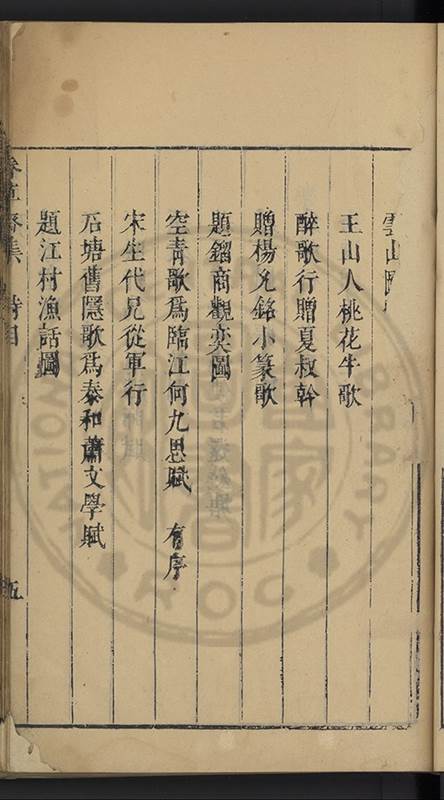 雲山
王山人桃花牛歌
醉歌行贈夏叔幹
贈楊允銘小篆歌
題鎦商觀奕圖
空青歌爲臨江何九思賦 有序
宋生代兄從軍行
石塘舊隱歌爲泰和蕭文學賦
題江村漁話圖
詩目
五